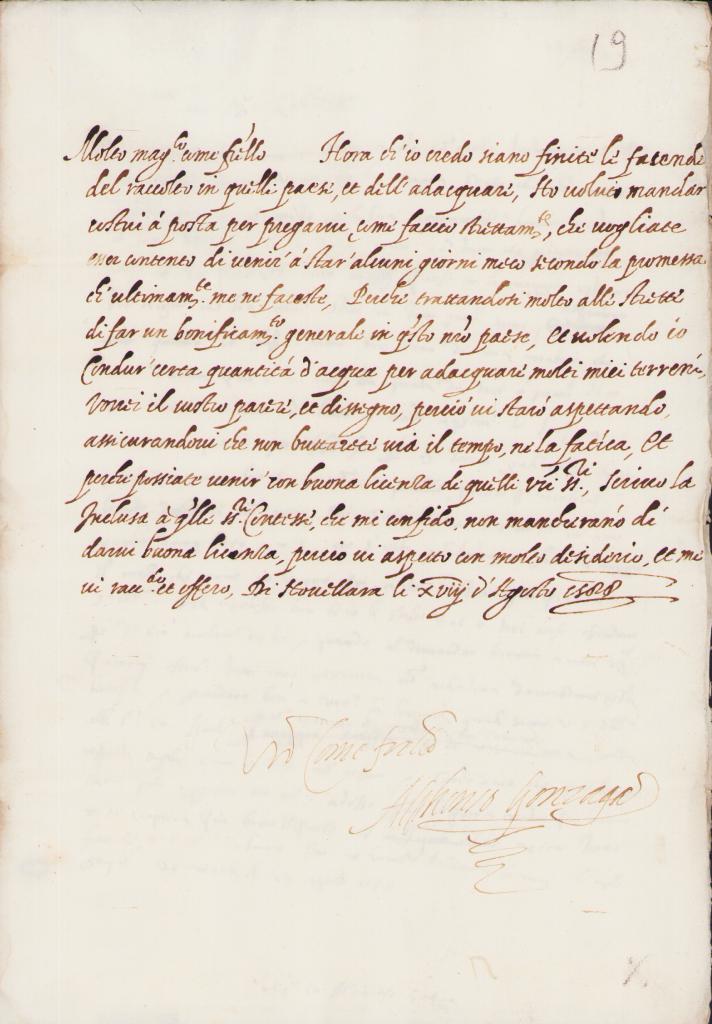 19
Molto mag.co come fr̃ello Hora ch'io credo siano finite le facende
del raccolto in quelli paesi, et dell'adacquare, Ho voluto mandar
costui à posta per pregarvi, come faccio strettam.te, che vogliate
esser contento di venir' à star' alcuni giorni meco secondo la promessa
ch'ultimam.te me ne faceste, Perche trattandosi molto alle strette
di far un bonificam.to generale in q̃sto nr̃o paese, et volendo io
Condur' certa quantità d'acqua per adacquare molti miei terreni,
Vorrei il vostro parere, et dissegno, perciò vi starò aspettando,
assicurandovi che non buttarete via il tempo, ne la fatica, Et
perche possiate venir' con buona licenza di quelli vr̃i ss.ri, scrivo la
Inclusa à q̃lle ss.re Contesse, che mi confido, non mancherano di
darvi buona licenza, perciò vi aspetto con molto desiderio, et me
vi racc.do et offero, Di Novellara li xviiij d'Agosto 1588
Vr̃o Come fratello
Alfonso Gonzaga